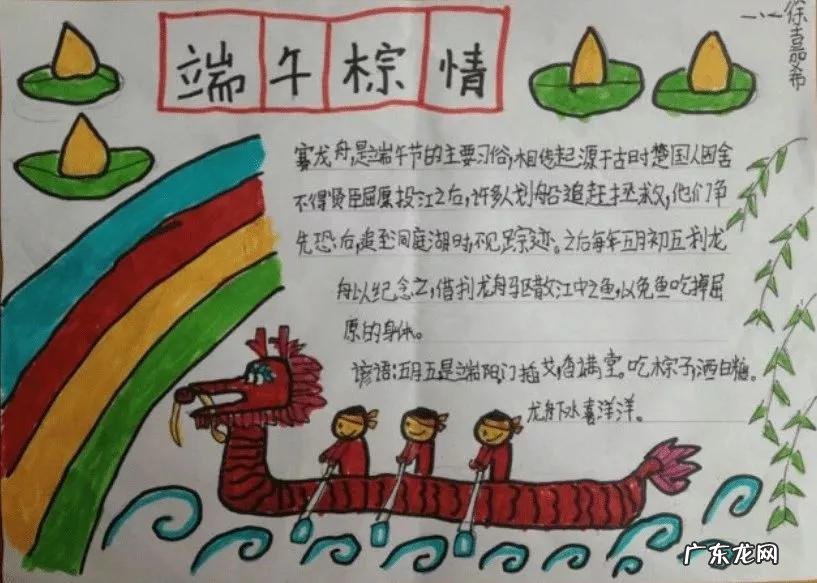 端午棕情
徐嘉希
赛龙舟,是端午节的主要习俗,相传起源于古时楚国人因舍
不得贤臣屈原投江之后,许多人划船追赶拯救,他们争
先恐后,追至洞庭湖时不见踪迹。之后每年五月初五划龙
舟以纪念之,借划龙舟驱散江中之鱼,以免鱼吃掉屈
原的身体。
谚语:五月五是端阳,门插艾,香满堂。吃棕子,洒白糖。
龙下水喜洋洋。
广东龙网